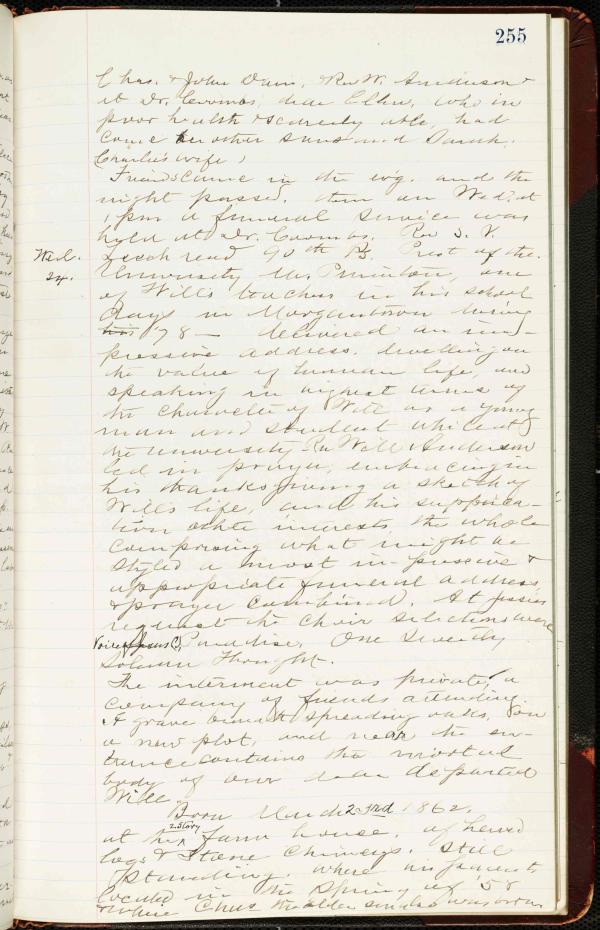 255
Chas. & John Dam, & Rev W. Anderson &
at Dr. Coombs, dear Ellen, who in
poor health & scarcely able, had
come her other sons and Sarah.
Charlie's wife,
Friends came in the evg. and the
night passed. then on Wed. at
1 pm a funeral service was
held at Dr. Coombs. Rev S. V.
Wed. 24.
Leech read 90th Ps. Prest of the
University Mr. Purinton, one
of Will's teachers in his school
days in Morgantown during
'78 — delivered an im-
pressive address. dwelling on
the value of human life, and
speaking in highest terms of
the character of Will as a young
man and student while at
the university. Rev Will Anderson
led in prayer, embracing in
his thanksgiving a sketch of
Will's life, and his supplica-
tion other interests the whole
comprising what might be
styled a most impressive &
appropriate funeral address
& prayer combined. At Jessie's
request the choir selections were
Voice of Jesus (?), Paradise. One Sweetly
Solemn Thought.
The interment was private, a
company of friends attending.
A grave beneath spreading oaks, on
a new plot, and near the en-
trance contains the mortal
body of our dear departed
Will.
Born March 23rd 1862.
at the 2 story farm house, of hewed
logs & Stone chimneys. Still
standing. where his parents
located in the Spring of '58
& where Chas the elder son also was born